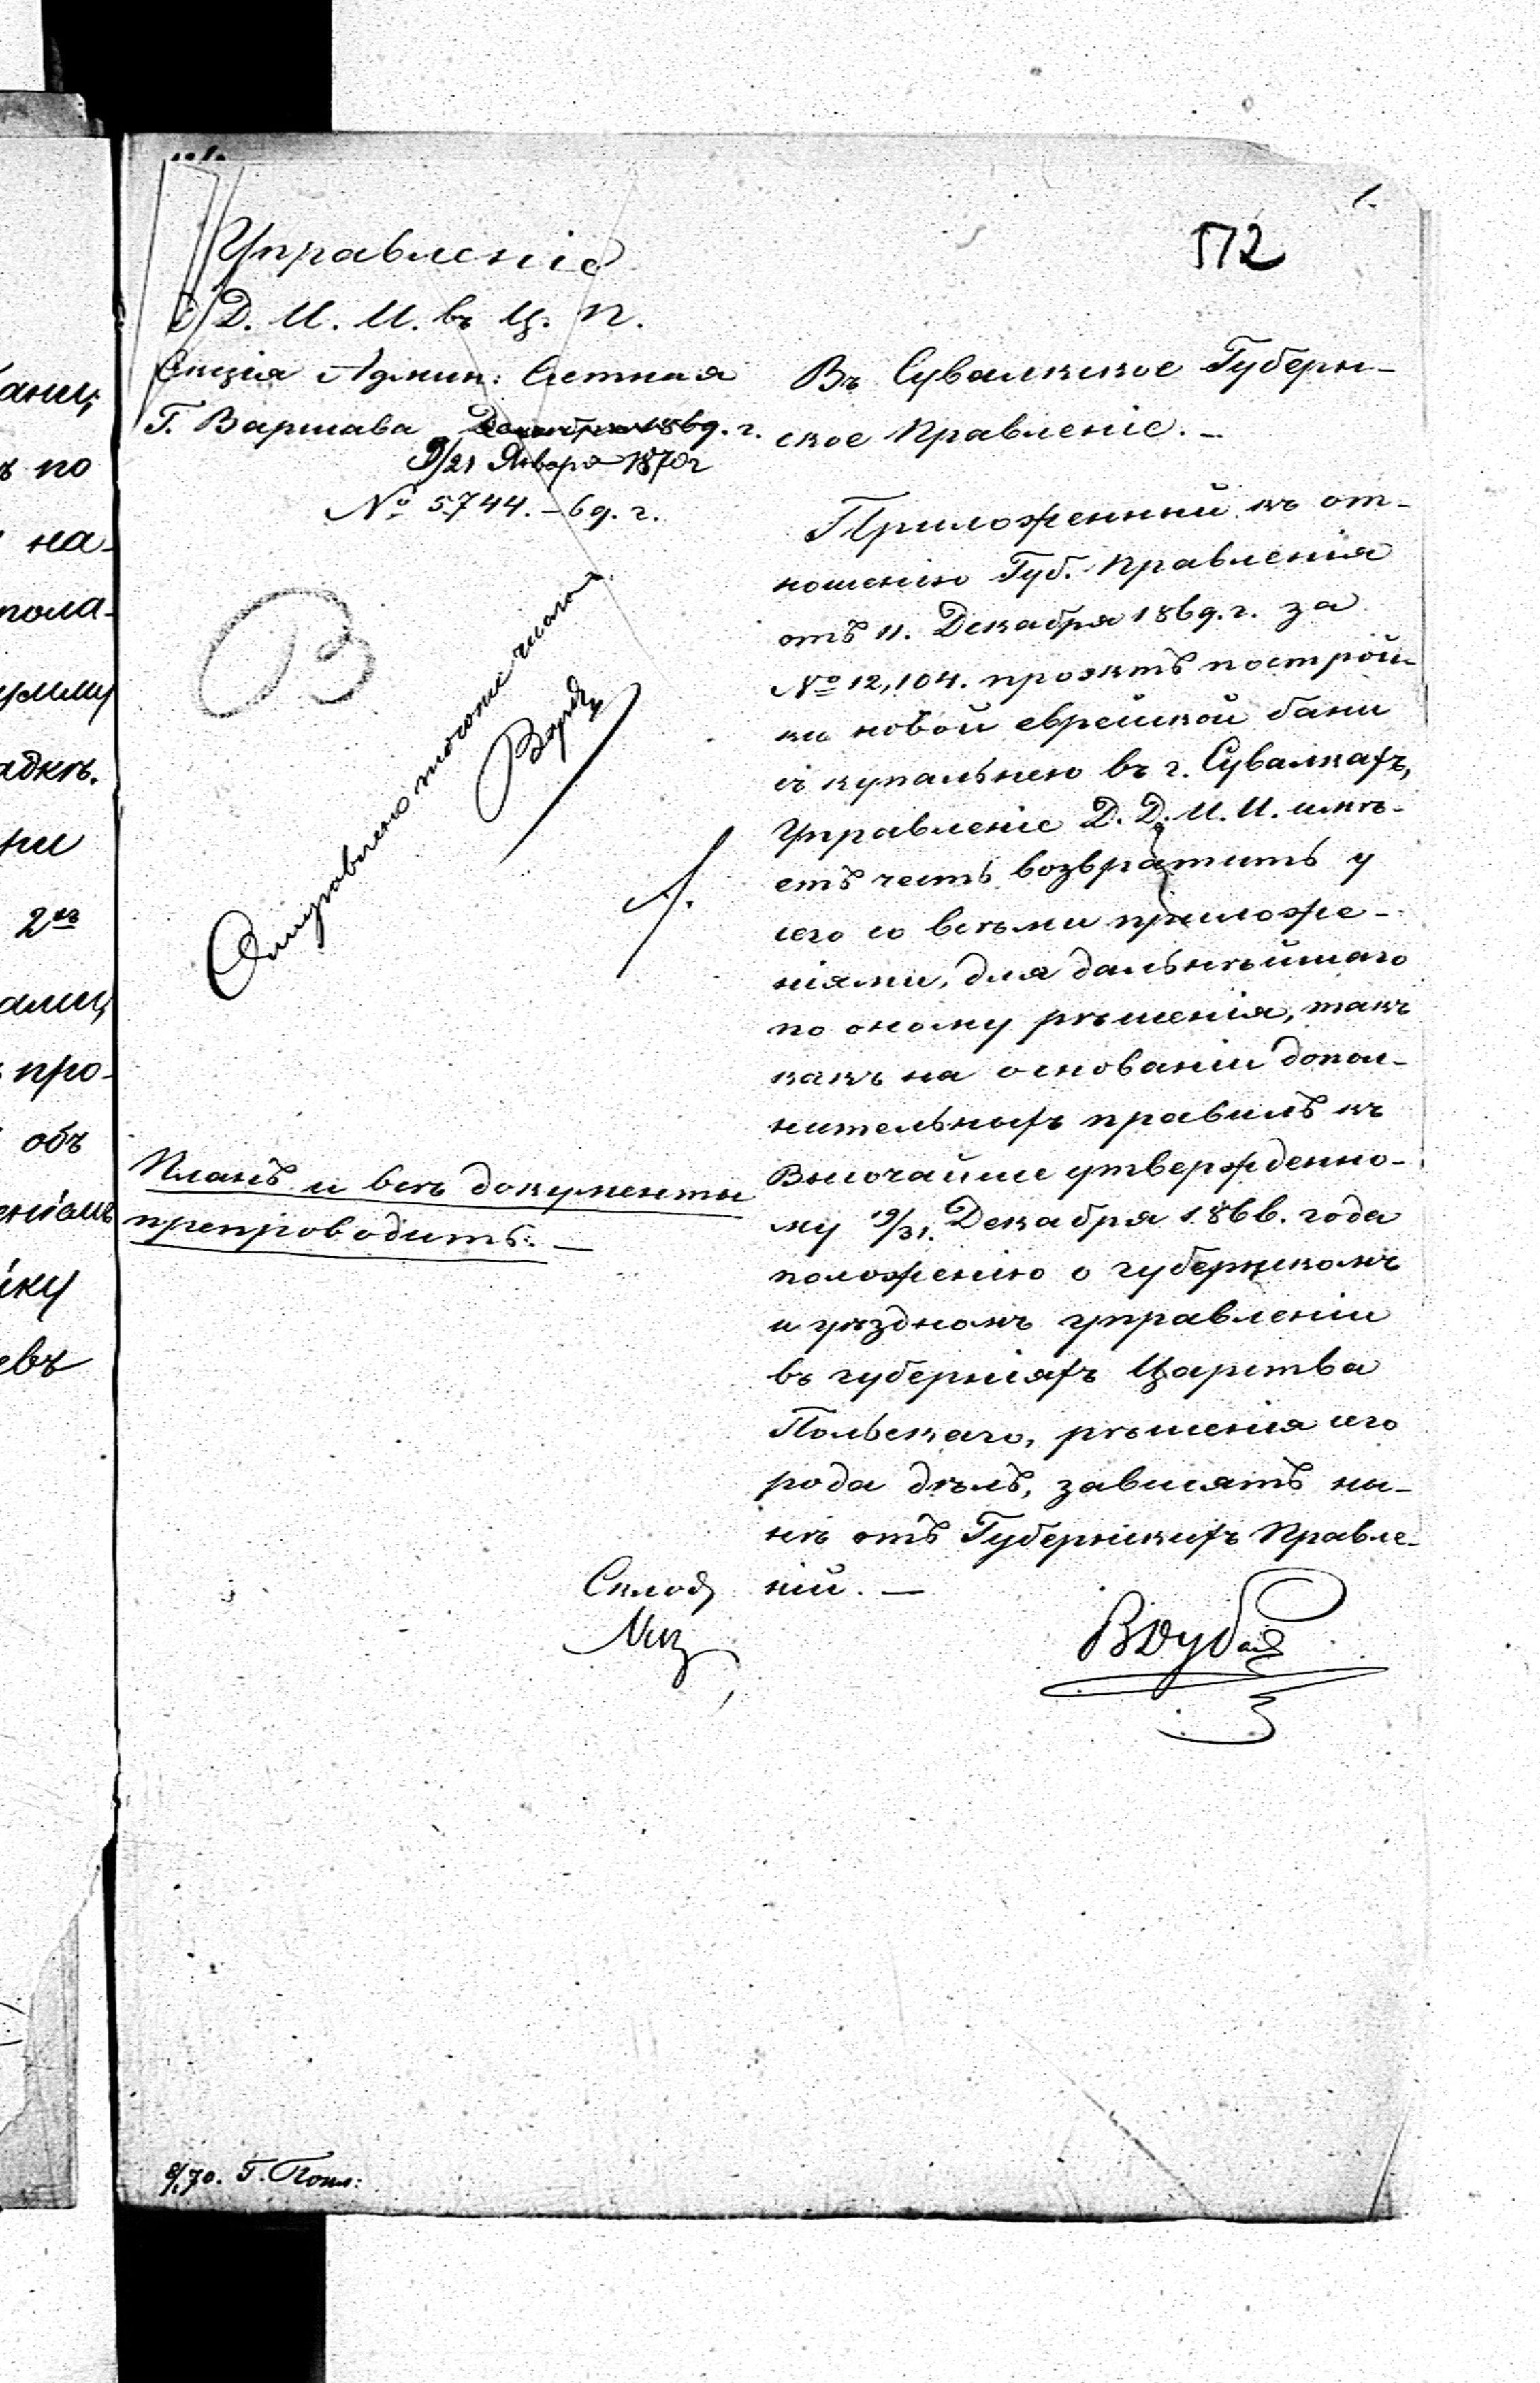 1.
572
Управленіе
Д. Д. И. И. въ Ц. П.
Секція Админ: Счетная
Г. Варшава Декабря 1869. г.
9/21 Января 1870 г
№ 5744. – 69. г.
В
Отправлено того же числа
Въ Сувалкское Губерн-
ское Правленіе. –
Приложенный къ от-
ношенію Губ. Правленія
отъ 11. Декабря 1869. г. за
№ 12,104. проэктъ построй-
ки новой еврейской бани
съ купальнею въ г. Сувалкахъ,
Управленіе Д. Д. И. И. имѣ-
етъ честь возвратить у
сего со всѣми приложе-
ніями, для дальнѣйшаго
по оному рѣшенія, такъ
какъ на основаніи допол-
нительныхъ правилъ къ
Высочайше утвержденно-
му 19/31. Декабря 1866. года
положенію о губернскомъ
и уѣздномъ управленіи
въ губерніяхъ Царства
Польскаго, рѣшенія сего
рода дѣлъ, зависятъ ны-
нѣ отъ Губернскихъ Правле-
ній. –
Планъ и всѣ документы
препроводить. –
Склод
8/1 70. Г. Попл:
ани,
ъ по
на-
пола-
адкѣ.
ри
про-
объ
еніямъ
йку
евъ